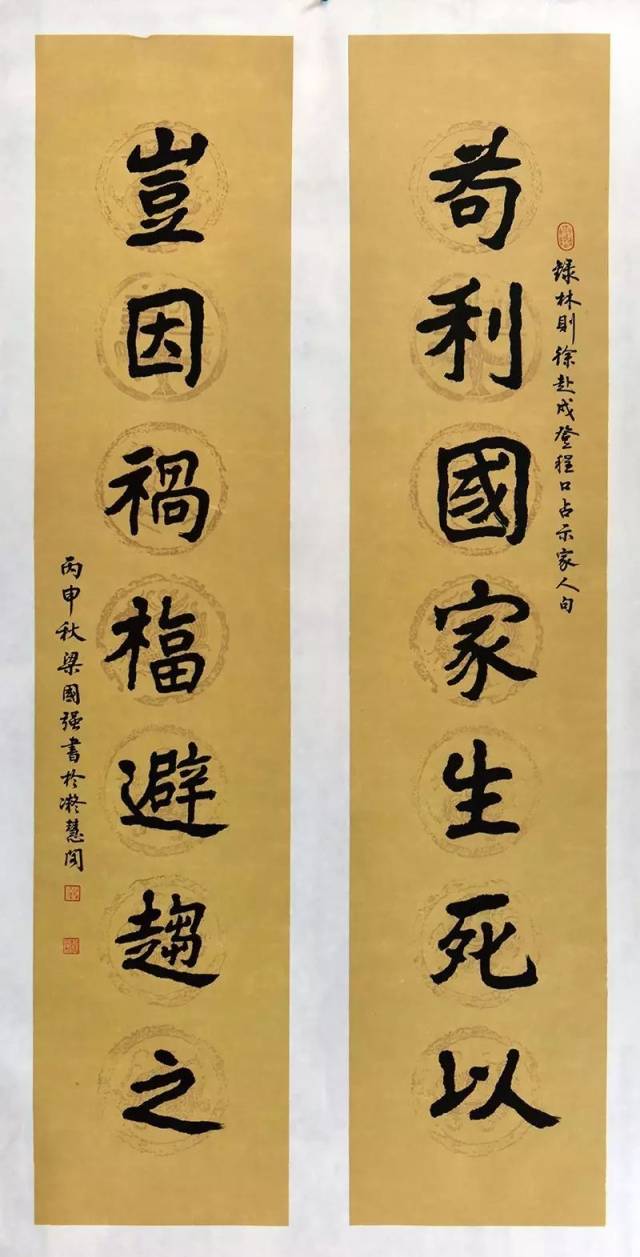 錄林則徐赴戍登程口占示家人句
苟利國家生死以
豈因禍福避趨之
丙申秋梁國强書於凝慧閣